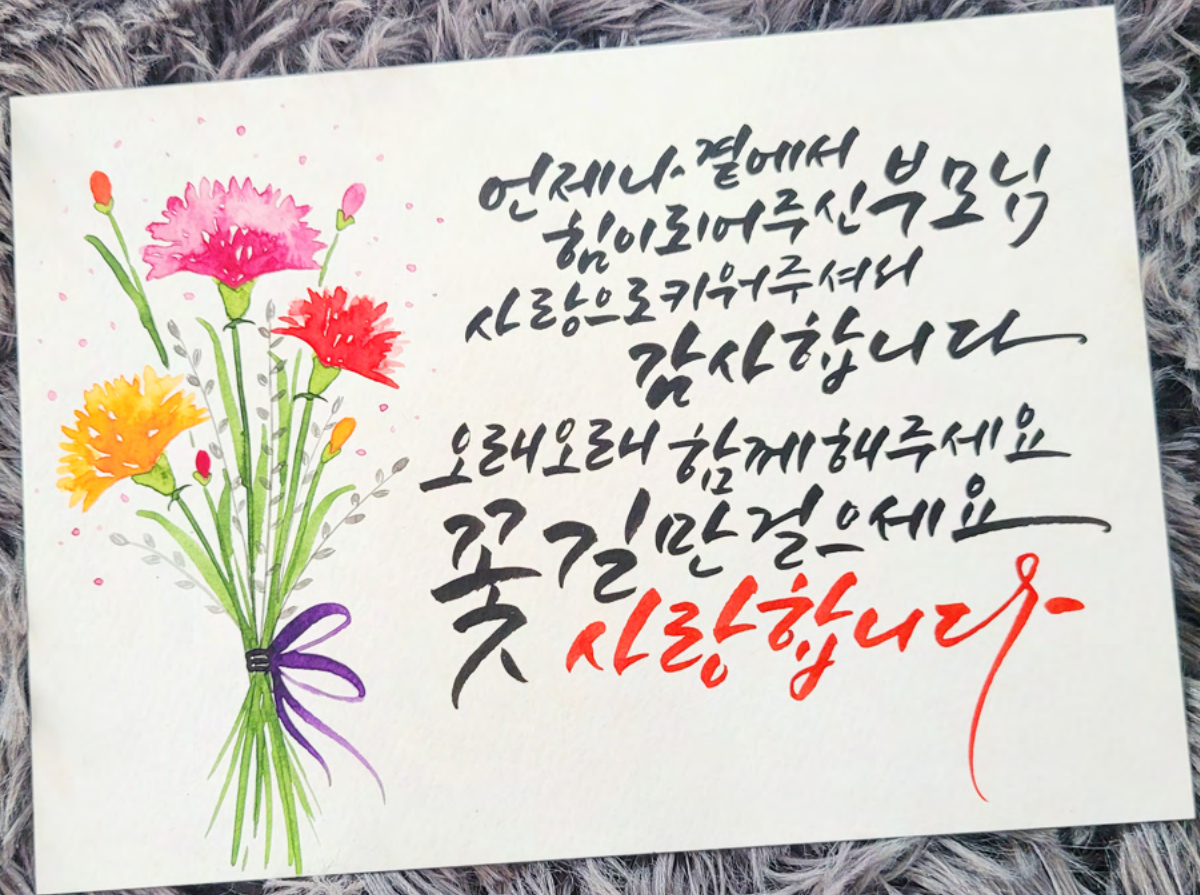 언제나 곁에서
힘이되어주신 부모님
사랑으로키워주셔서
감사합니다
오래오래 함께해주세요
꽃길만걸으세요
사랑합니다